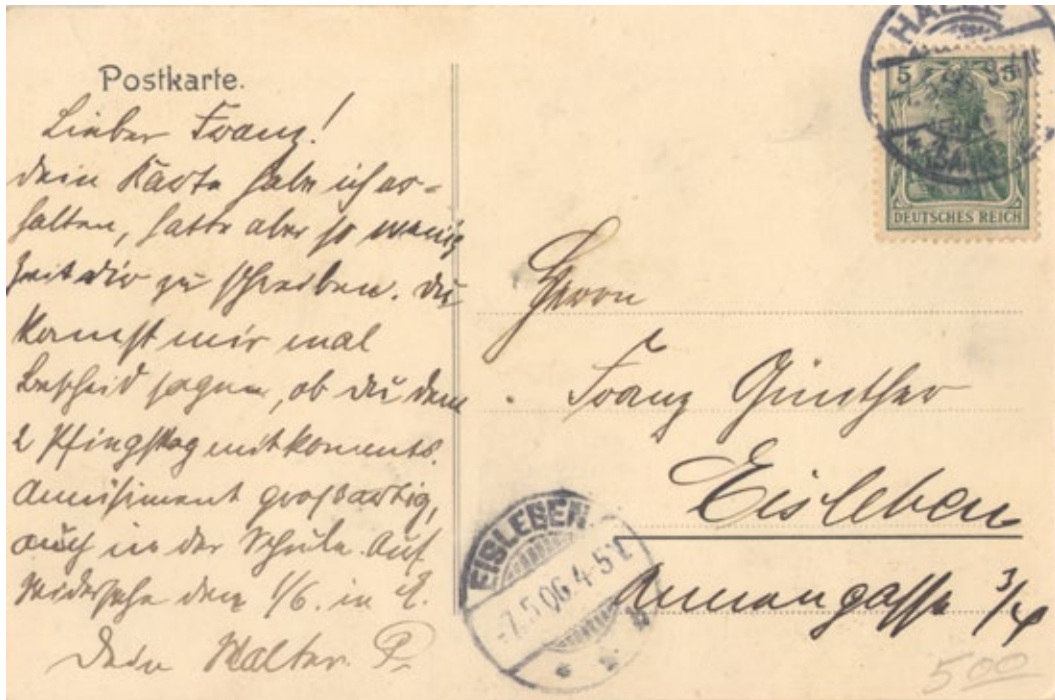 Postkarte.
Lieber Franz!
Dein Karte habe ich er-
halten, hatte aber so wenig
Zeit dir zu schreiben. Du
kannst mir mal
Bescheid sagen, ob du den
2 Pfingsttag mitkommts.
Amüsiment großartig,
auch in der Schule. Auf
Widersehn den 1/6. in E.
Dein Walter. P.
HALLE
5 5
DEUTSCHES REICH
Herrn
Franz Günther
Eisleben
Annengasse 3/4
EISLEBEN
7.5.06. 4-5
500